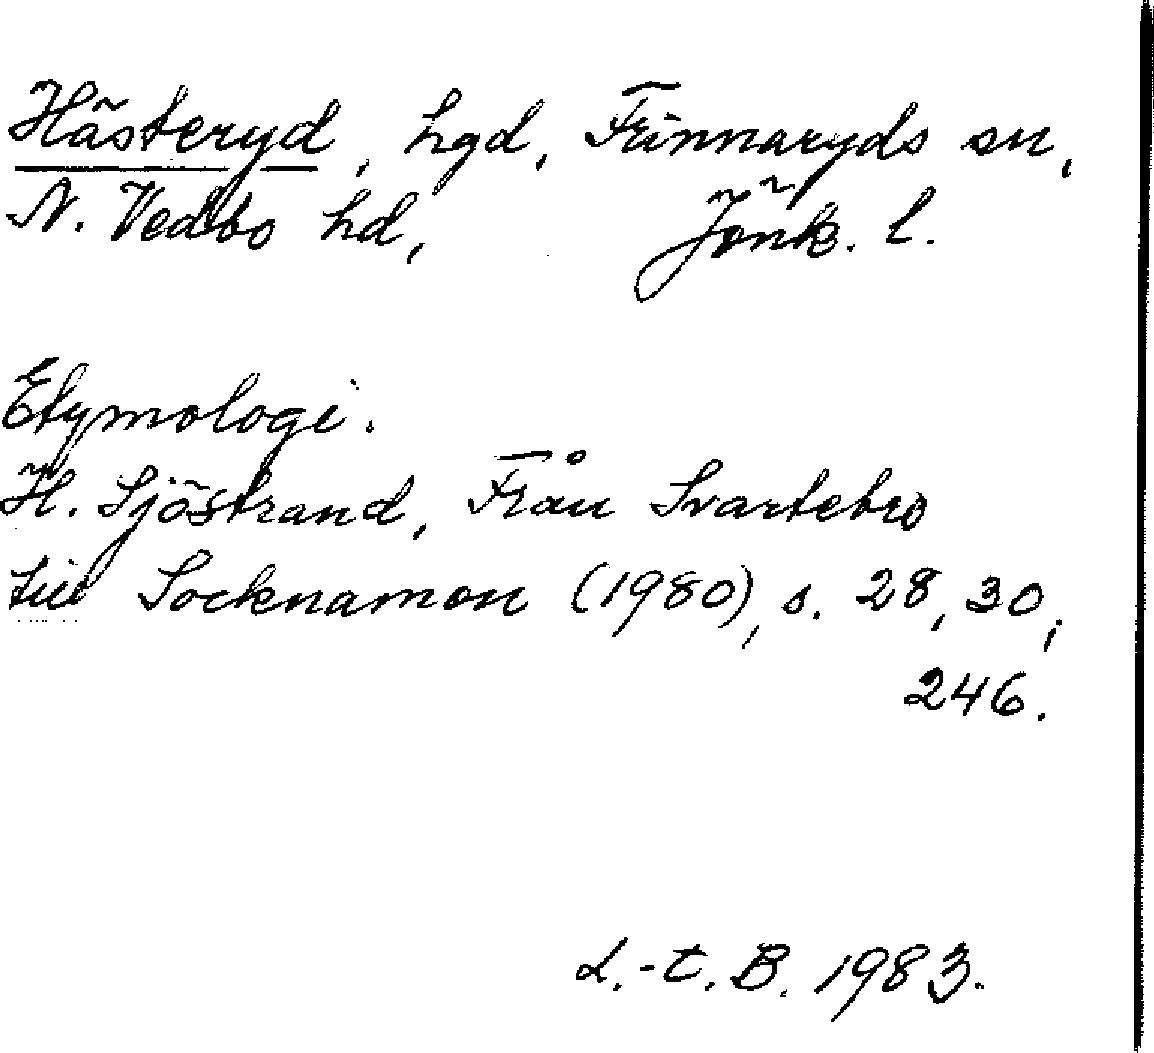 Hästeryd, hgd, Frinnaryds sn,
N. Vedbo hd, Jönk. l.
Etymologi.
H. Sjöstrand, Från Svartebro
till Socknamon (1980), s. 28, 30,
246.
L.-t. B. 1983.